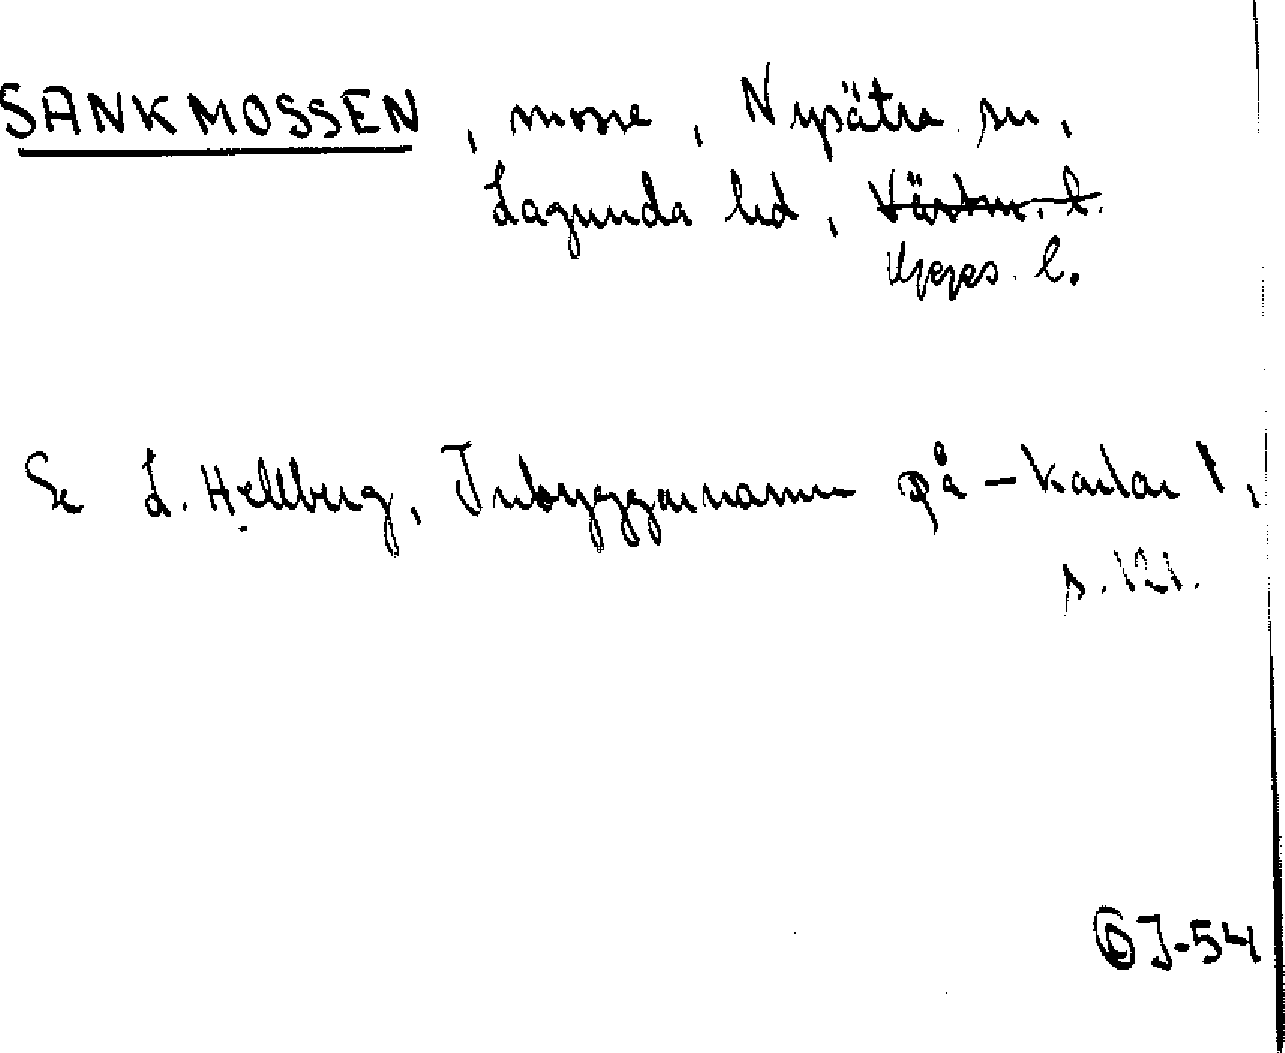 SANKMOSSEN, mosse, Nysätra sn,
Lagunda hd, Västm. l.
Upps. l.
Se L. Hellberg, Inbyggarnamn på -karlar 1,
s. 121.
J-54